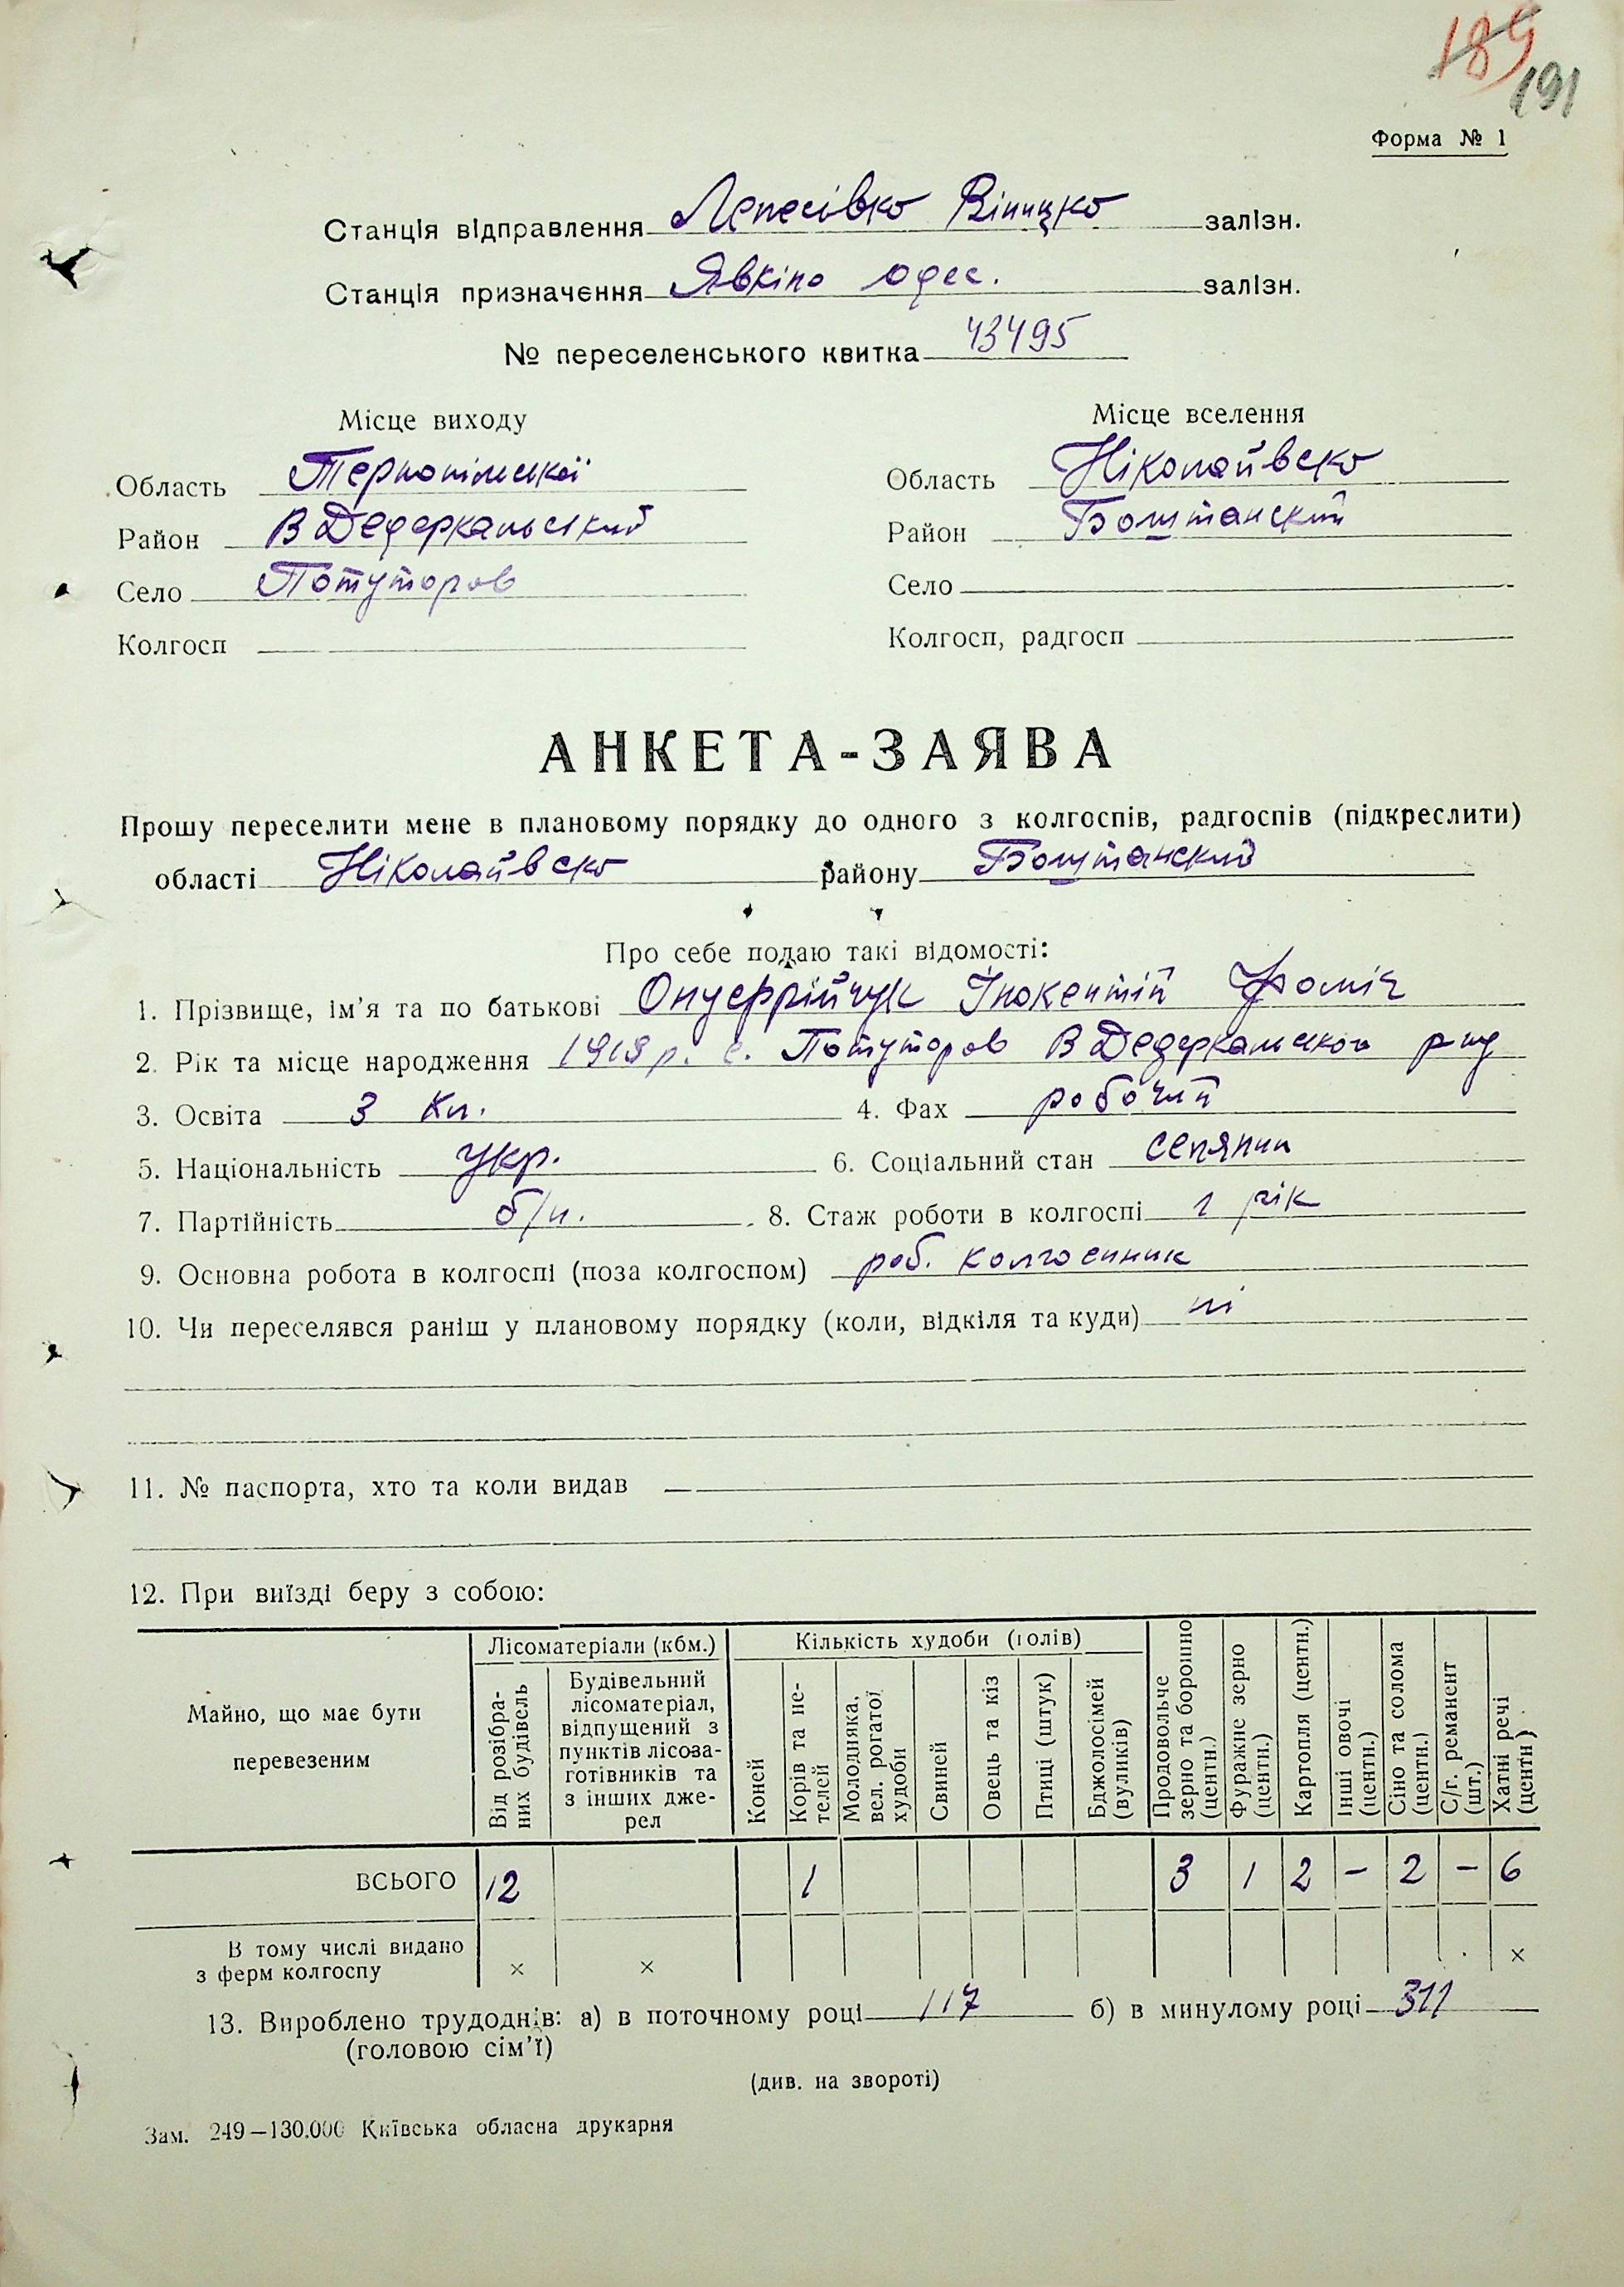 189
191
Форма № 1
Станція відправлення Лепесівко Віницко залізн.
Станція призначення Явкіно одес. залізн.
№ переселенського квитка 43495
Місце виходу
Місце вселення
Область Тернопільскої
Область Ніколайвско
Район В Дедеркальский
Район Боштанский
Село Потуторов
Село
Колгосп
Колгосп, радгосп
АНКЕТА-ЗАЯВА
Прошу переселити мене в плановому порядку до одного з колгоспів, радгоспів (підкреслити)
області Ніколайвско району Боштанский
Про себе подаю такі відомості:
1. Прізвище, ім'я та по батькові Онуфрійчук Інокентій Фоміч
2. Рік та місце народження 1919 р. с. Потуторов В Дедеркальскоо р-ну
3. Освіта 3 кл. 4. Фах робочий
5. Національність укр. 6. Соціальний стан селянин
7. Партійність б/п. 8. Стаж роботи в колгоспі 1 рік
9. Основна робота в колгоспі (поза колгоспом) роб. колгоспник
10. Чи переселявся раніш у плановому порядку (коли, відкіля та куди) ні
11. № паспорта, хто та коли видав —
12. При виїзді беру з собою:
Майно, що має бути перевезеним
Лісоматеріали (кбм.)
Кількість худоби (голів)
Від розібраних будівель
Будівельний лісоматеріал, відпущений з пунктів лісоза-готівників та з інших дже-рел
Коней
Корів та не-телей
Молодняка, вел. рогатої худоби
Свиней
Овець та кіз
Птиці (штук)
Бджолосімей (вуликів)
Продовольче зерно та борошно (центн.)
Фуражне зерно (центн.)
Картопля (центн.)
Інші овочі (центн.)
Сіно та солома (центн.)
С/г. реманент (шт.)
Хатні речі (центн)
ВСЬОГО 12 1 3 1 2 – 2 – 6
В тому числі видано з ферм колгоспу × × ×
13. Вироблено трудоднів: а) в поточному році 117 б) в минулому році 311
(головою сім'ї)
(див. на звороті)
Зам. 249—130.000 Київська обласна друкарня